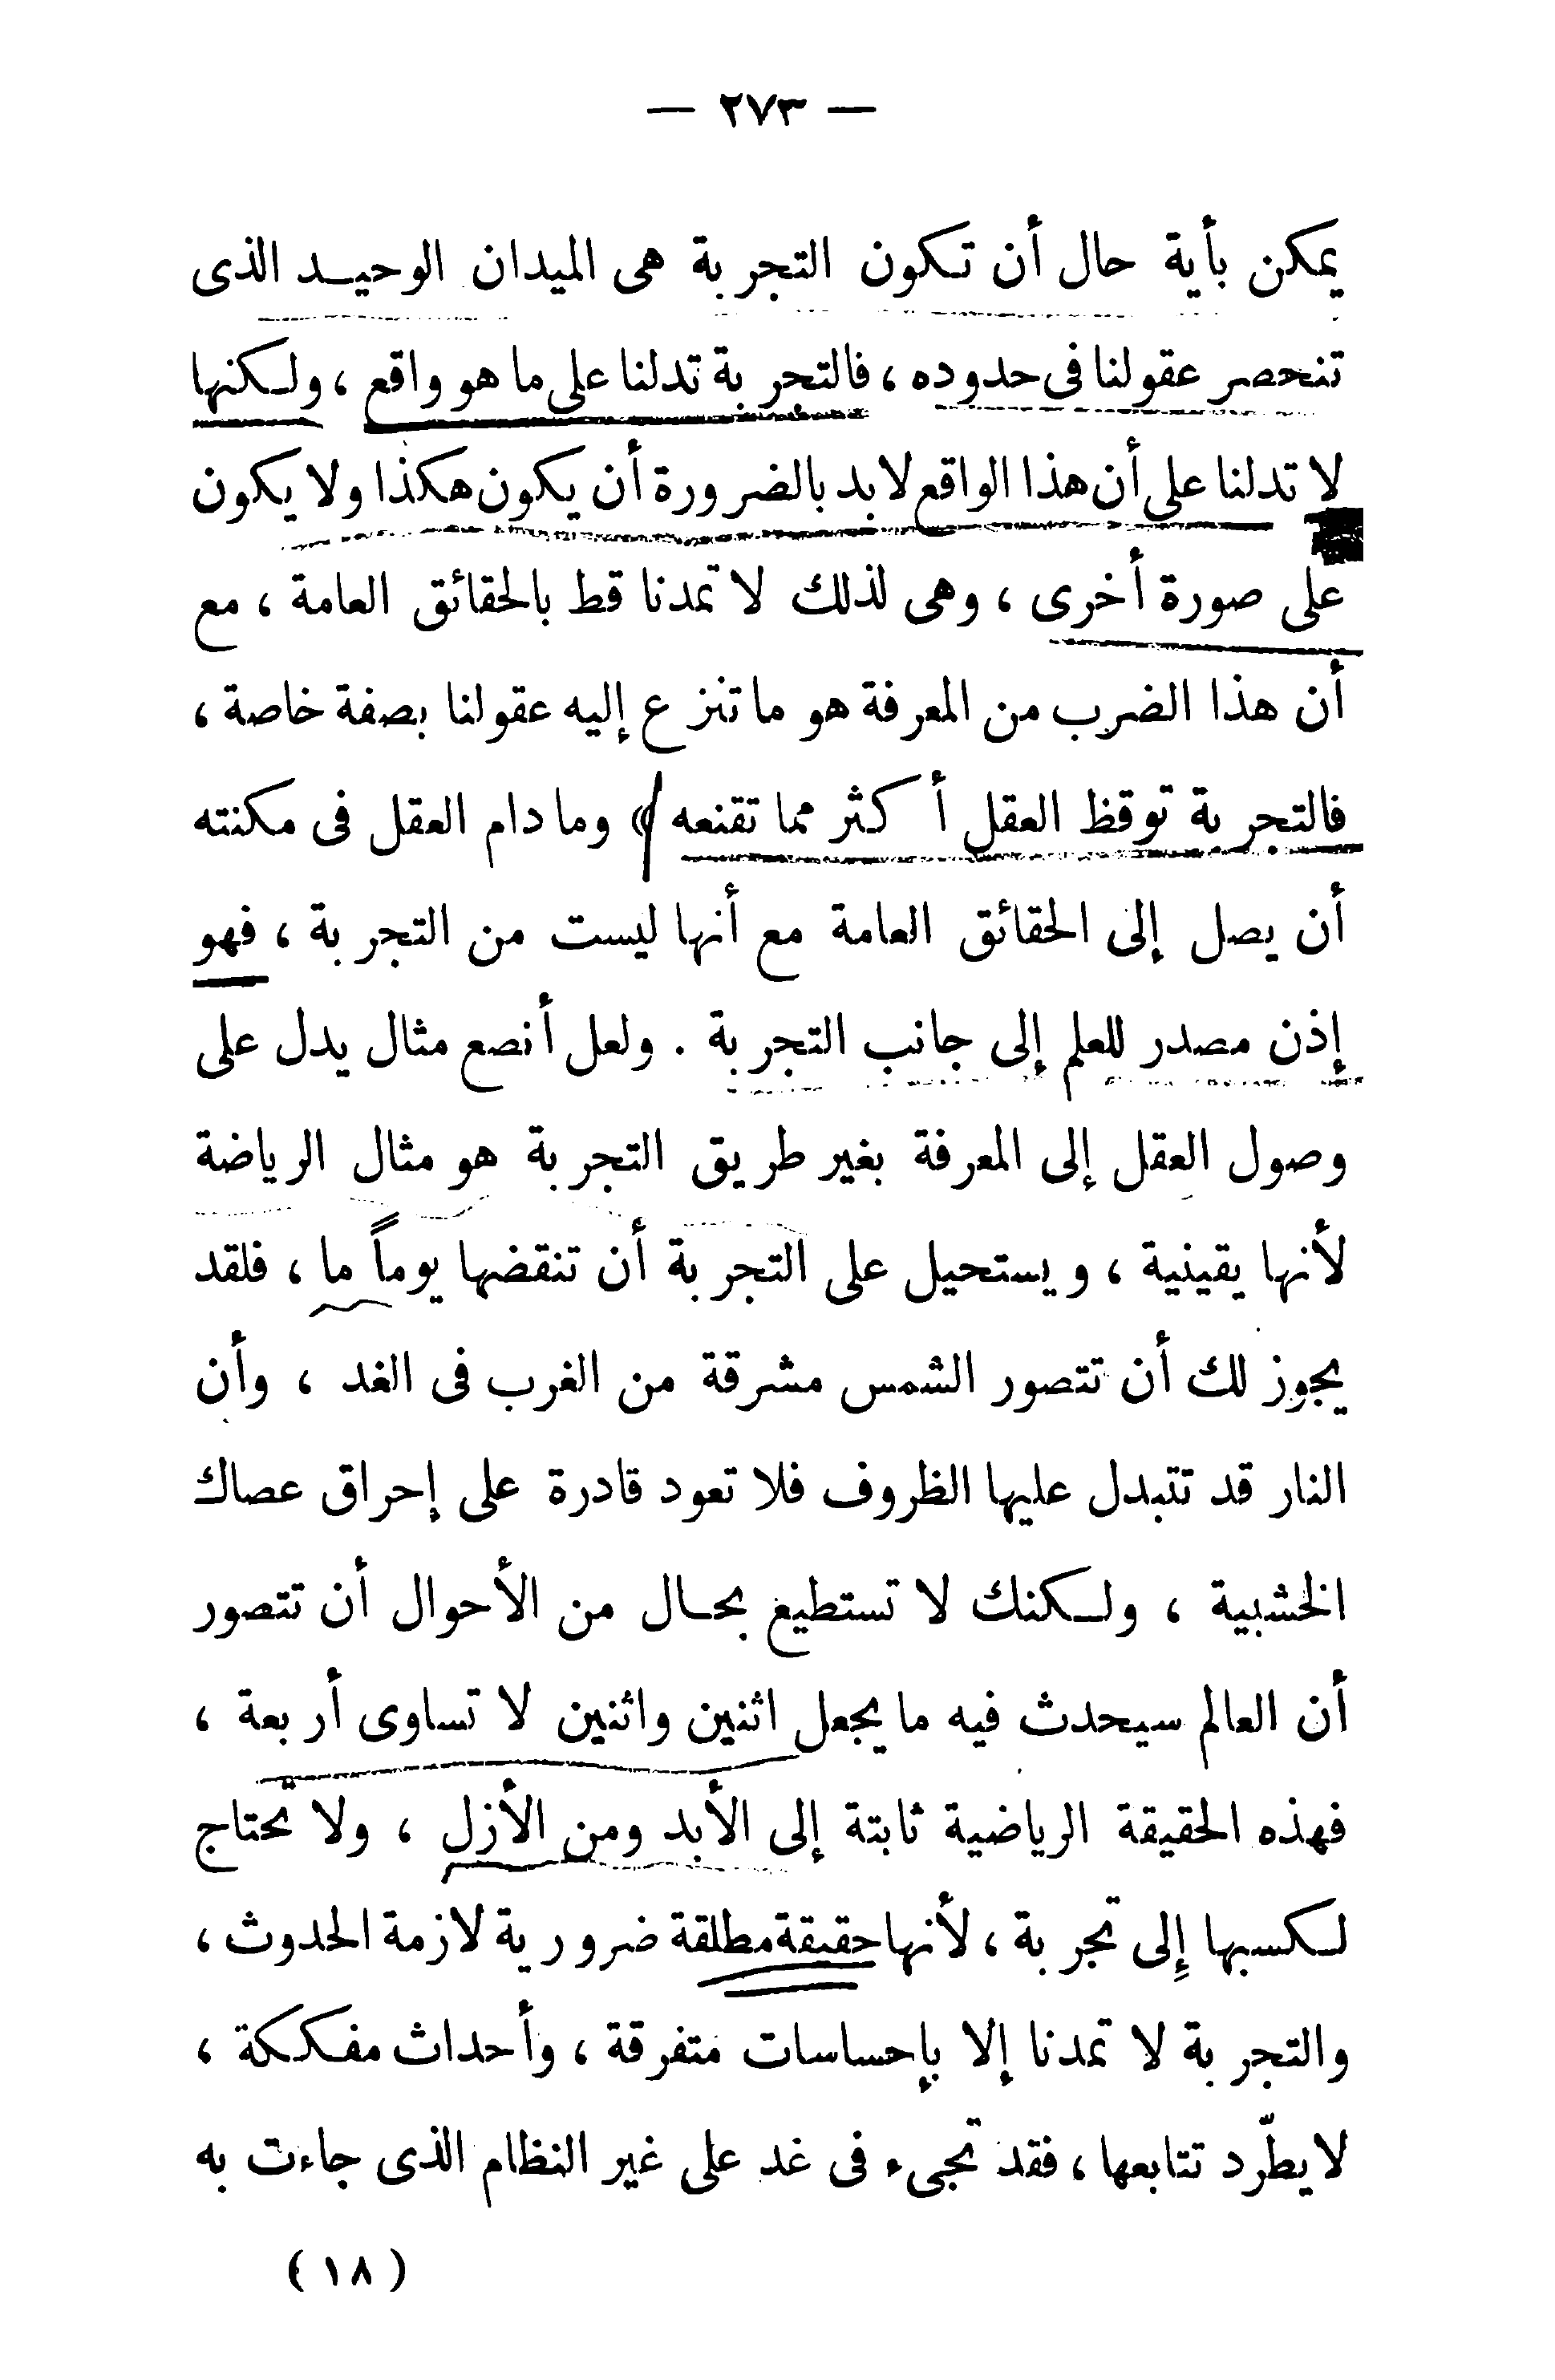 — ٢٧٣ —
يمكن بأية حال أن تكون التجربة هى الميدان الوحيد الذى
تنحصر عقولنا فى حدوده ، فالتجربة تدلنا على ما هو واقع ، ولكنها
لا تدلنا على أن هذا الواقع لابد بالضرورة أن يكون هكذا ولا يكون
على صورة أخرى ، وهى لذلك لا تمدنا قط بالحقائق العامة ، مع
أن هذا الضرب من المعرفة هو ما تنزع إليه عقولنا بصفة خاصة ،
فالتجربة توقظ العقل أكثر مما تقنعه » وما دام العقل فى مكنته
أن يصل إلى الحقائق العامة مع أنها ليست من التجربة ، فهو
إذن مصدر للعلم إلى جانب التجربة . ولعل أنصع مثال يدل على
وصول العقل إلى المعرفة بغير طريق التجربة هو مثال الرياضة
لأنها يقينية ، ويستحيل على التجربة أن تنقضها يوماً ما ، فلقد
يجوز لك أن تتصور الشمس مشرقة من الغرب فى الغد ، وأن
النار قد تتبدل عليها الظروف فلا تعود قادرة على إحراق عصاك
الخشبية ، ولكنك لا تستطيع بحال من الأحوال أن تتصور
أن العالم سيحدث فيه ما يجعل اثنين واثنين لا تساوى أربعة ،
فهذه الحقيقة الرياضية ثابتة إلى الأبد ومن الأزل ، ولا تحتاج
لكسبها إلى تجربة ، لأنها حقيقة مطلقة ضرورية لازمة الحدوث ،
والتجربة لا تمدنا إلا بإحساسات متفرقة ، وأحداث مفككة ،
لا يطّرد تتابعها ، فقد تجىء فى غد على غير النظام الذى جاءت به
( ١٨ )